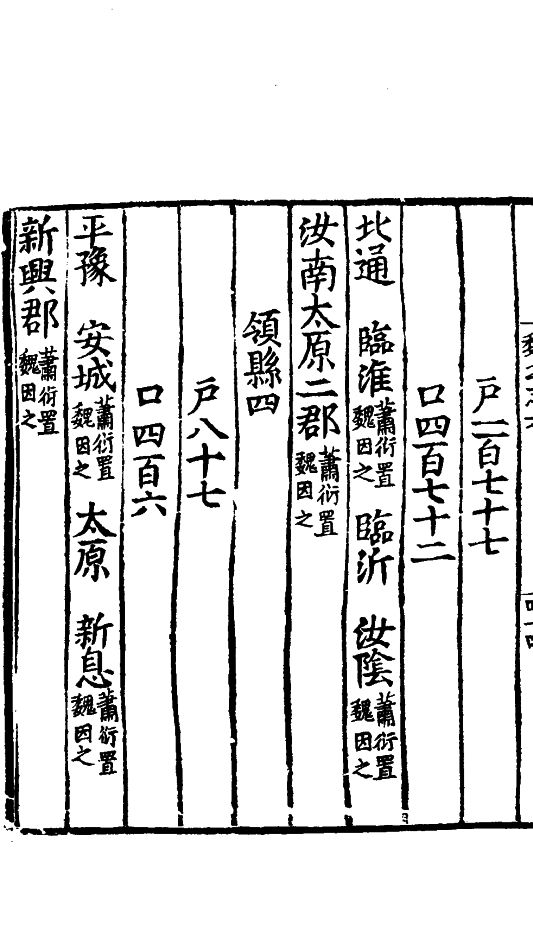 戸一百七十七
口四百七十二
北通　臨淮蕭衍置魏因之　臨沂　汝陰蕭衍置魏因之
汝南太原二郡蕭衍置魏因之
領縣四
戸八十七
口四百六
平豫　安城蕭衍置魏因之　太原　新息蕭衍置魏因之
新興郡蕭衍置魏因之